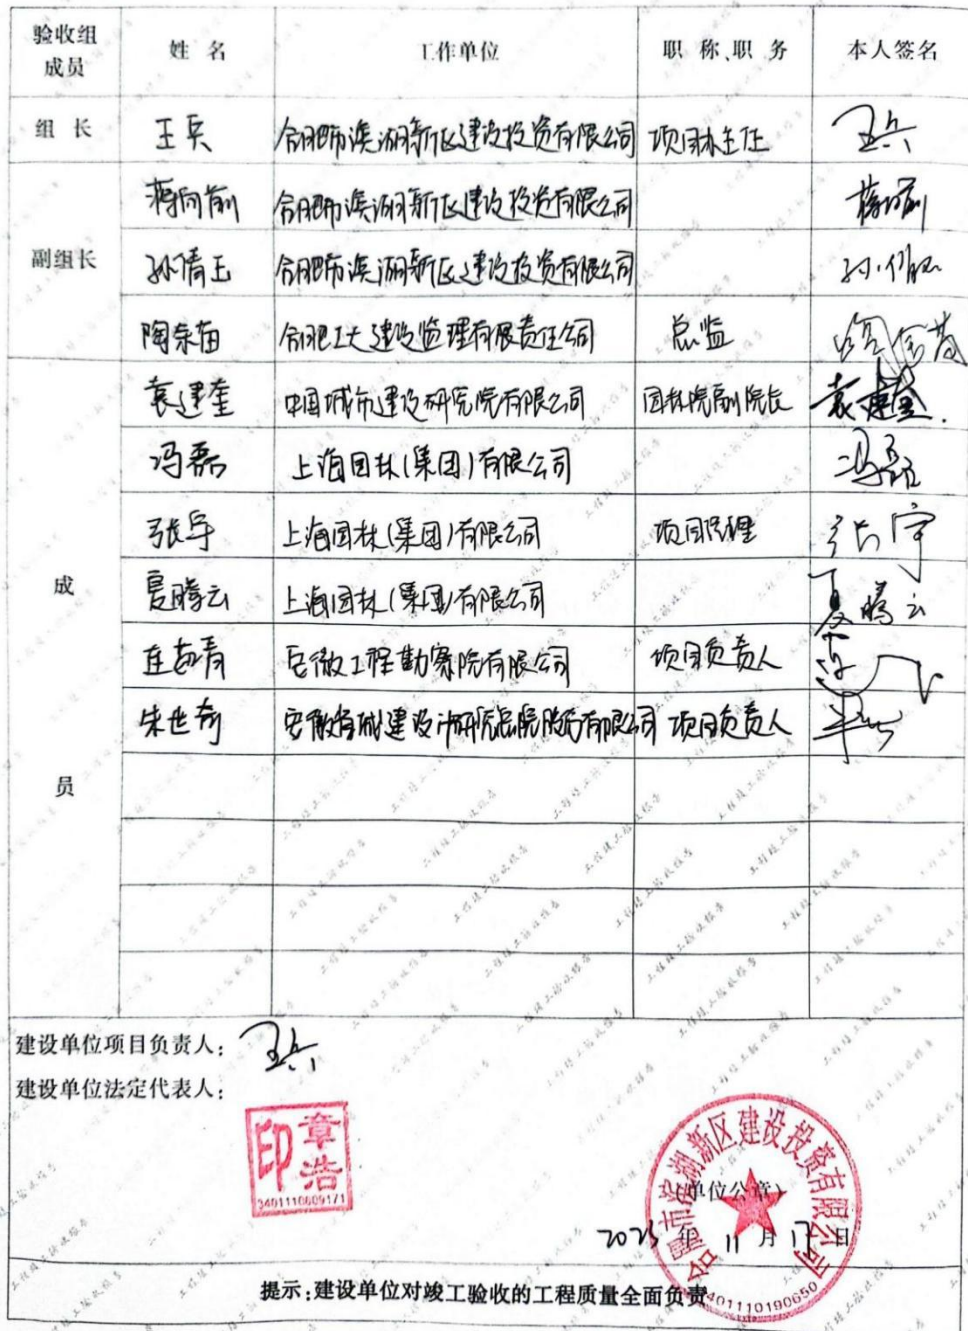 验收组成员 姓 名 工作单位 职 称、职 务 本人签名
组 长 王兵 合肥市滨湖新区建设投资有限公司 项目办主任 王兵
副组长 蒋向前 合肥市滨湖新区建设投资有限公司 蒋向前
孙倩玉 合肥市滨湖新区建设投资有限公司
陶宗苗 合肥工大建设监理有限责任公司 总监
成员 袁建奎 中国城市建设研究院有限公司 园林院副院长 袁建奎
冯磊 上海园林(集团)有限公司 冯磊
张宇 上海园林(集团)有限公司 项目经理 张宇
夏腾云 上海园林(集团)有限公司 夏腾云
安徽工程勘察院有限公司 项目负责人
朱世奇 安徽省城建设计研究总院股份有限公司 项目负责人
建设单位项目负责人: 王兵
建设单位法定代表人:
章浩印
3401110609171
合肥市滨湖新区建设投资有限公司
(单位公章)
年 11 月 日
3401110190650
提示:建设单位对竣工验收的工程质量全面负责